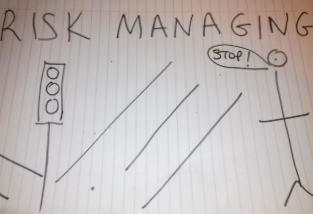 RISK MANAGING
STOP!